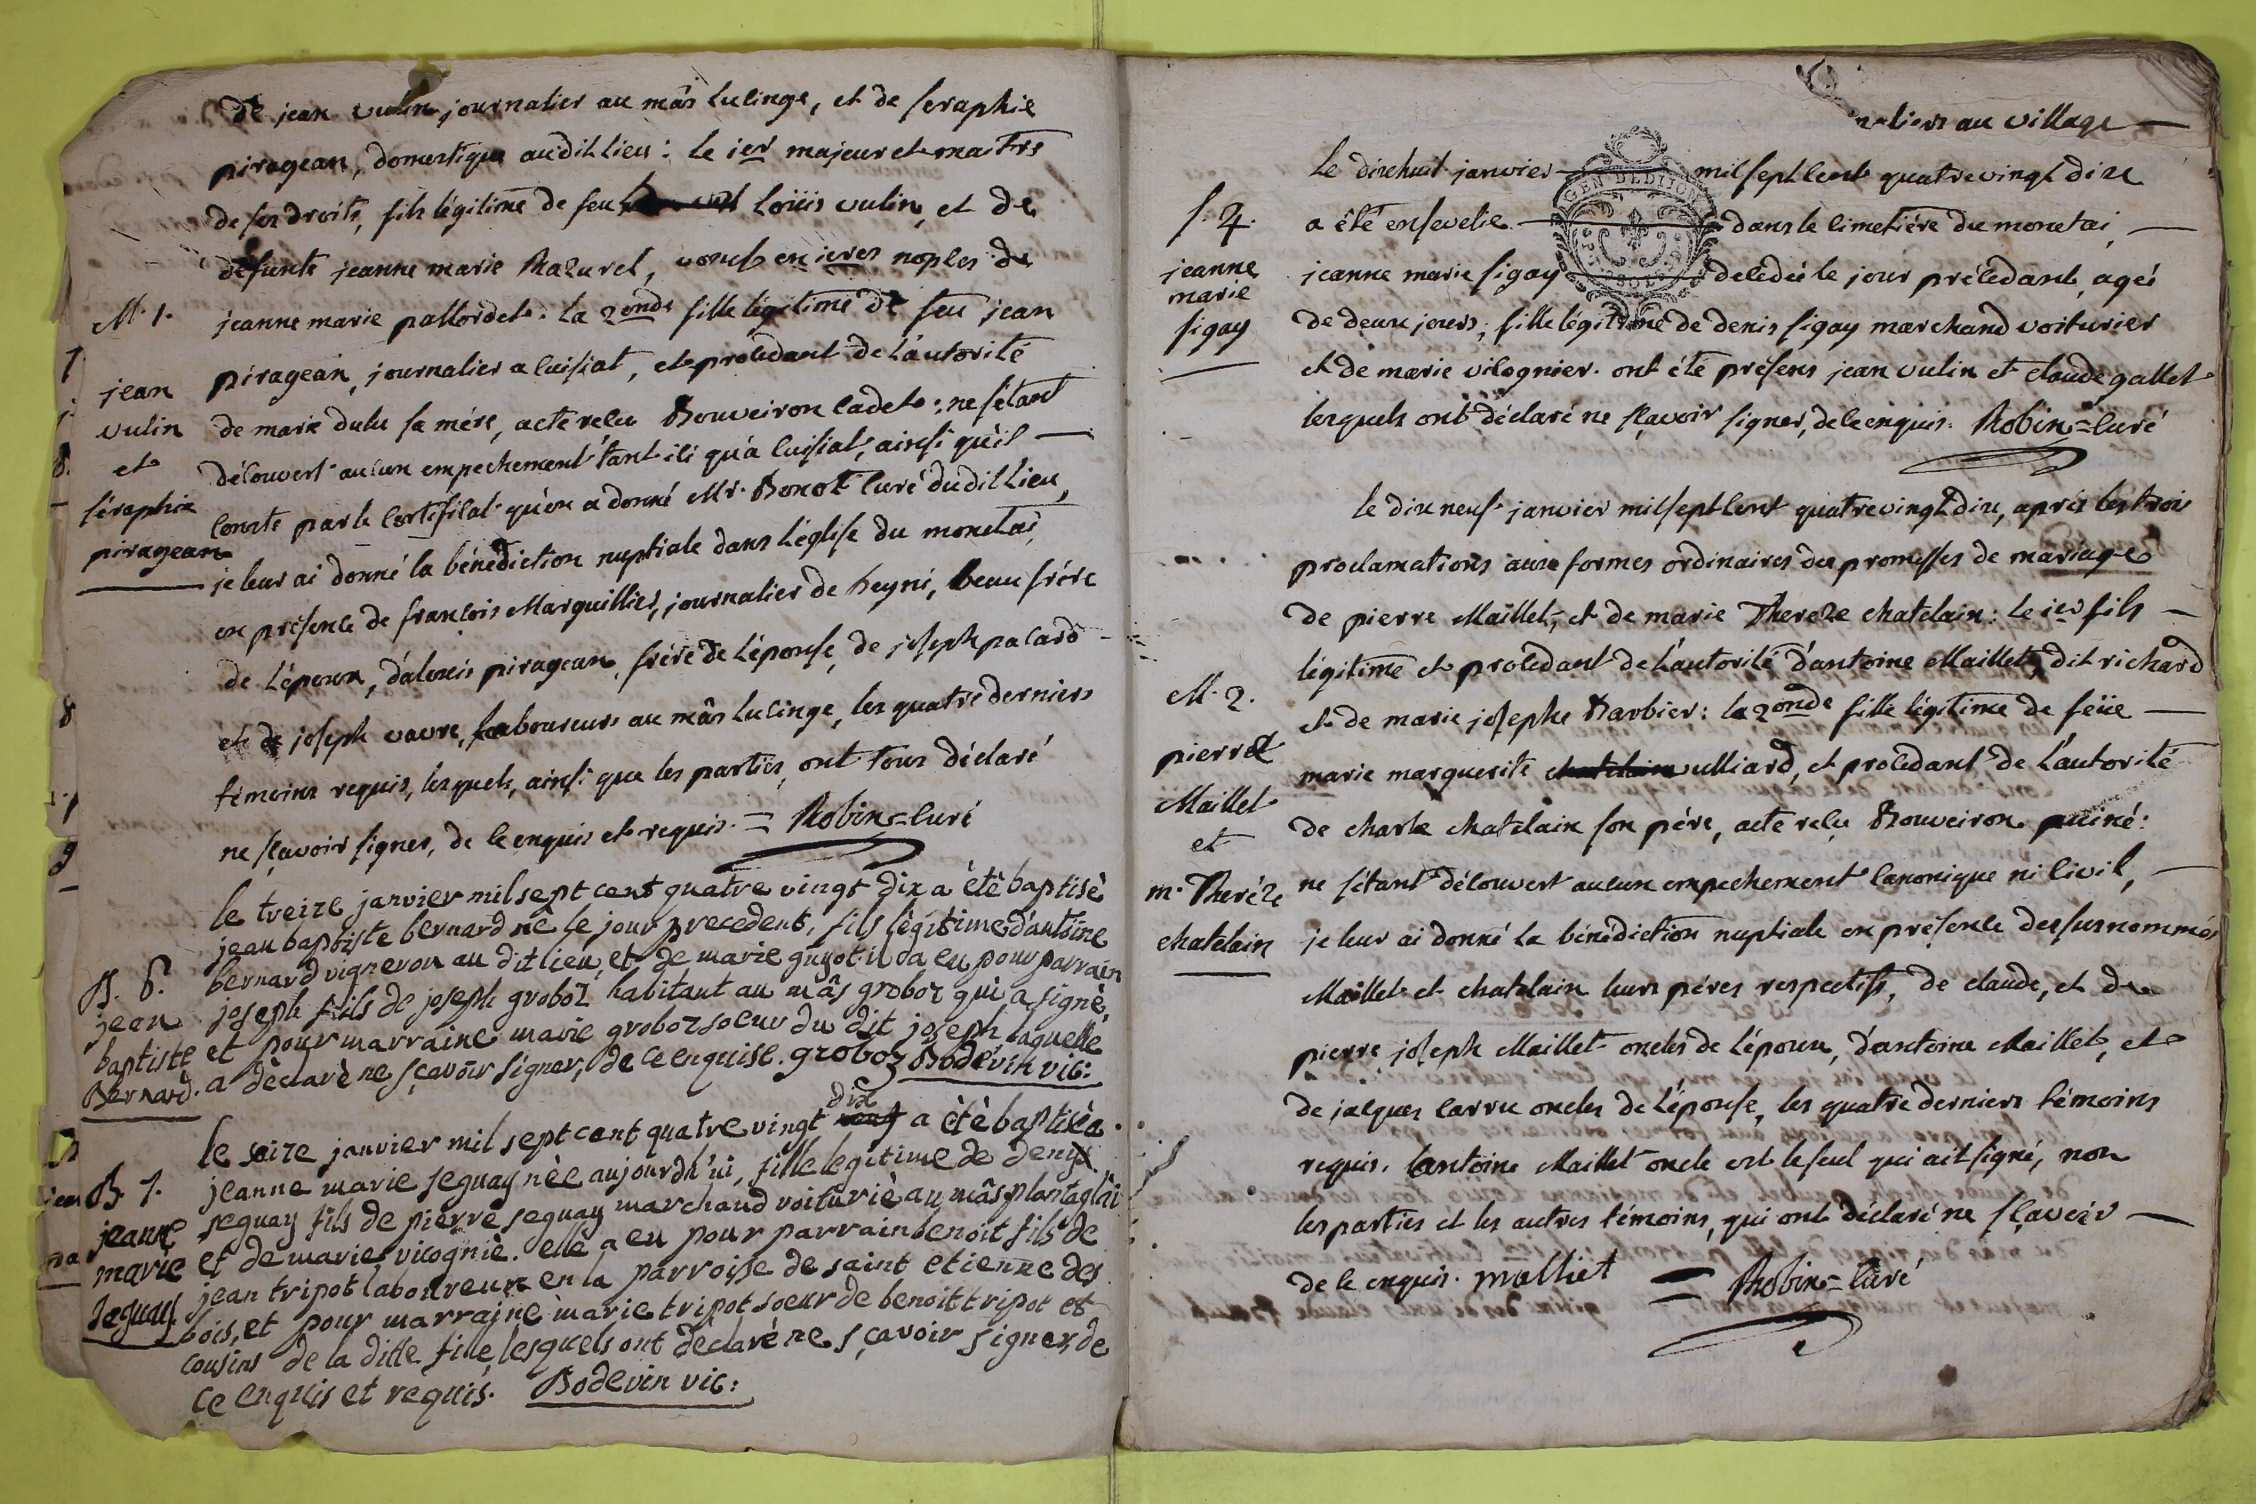 de jean vulin journalier au mâs lucinge, et de seraphie
piragean, domestique audit lieu : le 1er majeur et maitre
de ses droits, fils légitime de feu Loüis vulin, et de
defunte jeanne marie Mazuret, veuf en 1eres noples de
M. 1.
jeanne marie pallordet. la 2onde fille légitime de feu jean
piragean, journalier a cuisiat, et procedant de l'autorité
jean
vulin
et
séraphie
piragean
de marie dulu sa mére, acte reçu Bouveiron cadet : ne s'étant
découvert aucun empechement tant ici qu'à cuisiat, ainsi qu'il
conste par le certificat qu'en a donné Mr. Bonot curé dudit lieu,
je leur ai donné la bénédiction nuptiale dans l'église du monetai
en présence de francois Marquillier, journalier de heyri, beau frére
de l'époux, d'alexis piragean, frére de l'épouse, de joseph pacard
et de joseph vavre, laboureurs au mâs lucinge, les quatre derniers
témoins requis, lesquels, ainsi que les parties, ont tous déclaré
ne sçavoir signer, de ce enquis et requis. = Robin = curé
le treize janvier mil sept cent quatre vingt dix a èté baptisè
jean baptiste bernard nè le jour precedent, fils lègitime d'antoine
bernard vigneron au dit lieu, et de marie guyot. il a eu pour parrain
B. 6.
jean
baptiste
Bernard.
joseph fils de joseph groboz habitant au mâs groboz qui a signè,
et pour marraine marie groboz soeur du dit joseph laquelle
a dèclarè ne sçavoir signer, de ce enquise. groboz Bodevin vic:
le seize janvier mil sept cent quatre vingt dix a ètè baptisèe
B. 7.
jeanne
marie
seguay
jeanne marie seguay nèe aujourdh'ui, fille legitime de denys
seguay fils de pierre seguay marchand voituriè au mâs plantaglai
et de marie vicogniè. elle a eu pour parrain benoit fils de
jean tripot laboureur en la parroisse de saint etienne des
bois, et pour marraine marie tripot soeur de benoit tripot et
cousins de la ditte fille, lesquels ont dèclarè ne sçavoir signer, de
ce enquis et requis. Bodevin vic:
au village
Le dix huit janvier mil sept cent quatre vingt dix
S. 4.
jeanne
marie
sigay
a été ensevelie dans le cimetiére du monetai,
jeanne marie sigay decedée le jour précedant, agée
de deux jours, fille légitime de denis sigay marchand voiturier
et de marie vicognier. ont été présens jean vulin et claude gallet
lesquels ont déclaré ne sçavoir signer, de ce enquis. Robin = curé
le dix neuf janvier mil sept cent quatre vingt dix, aprés les trois
proclamations aux formes ordinaires des promesses de mariage
de pierre Maillet, et de marie Thereze chatelain : le 1er fils
légitime et procedant de l'autorité d'antoine Maillet, dit richard
M. 2.
pierre
Maillet
et
m. Theréze
chatelain
et de marie josephe Barbier : la 2onde fille légitime de feüe
marie marguerite chatelain ulliard, et procedant de l'autorité
de charle chatelain son pére, acte reçu Bouveiron puiné :
ne s'étant découvert aucun empechement canonique ni civil,
je leur ai donné la bénédiction nuptiale en présence des surnommés
Maillet et chatelain leurs péres respectifs, de claude, et de
pierre joseph Maillet oncles de l'époux, d'antoine Maillet, et
de jacques carru oncles de l'épouse, les quatre derniers témoins
requis, lantoine Maillet oncle est le seul qui ait signé, non
les parties et les autres témoins, qui ont déclaré ne sçavoir
de ce enquis. malliet = Robin = curé